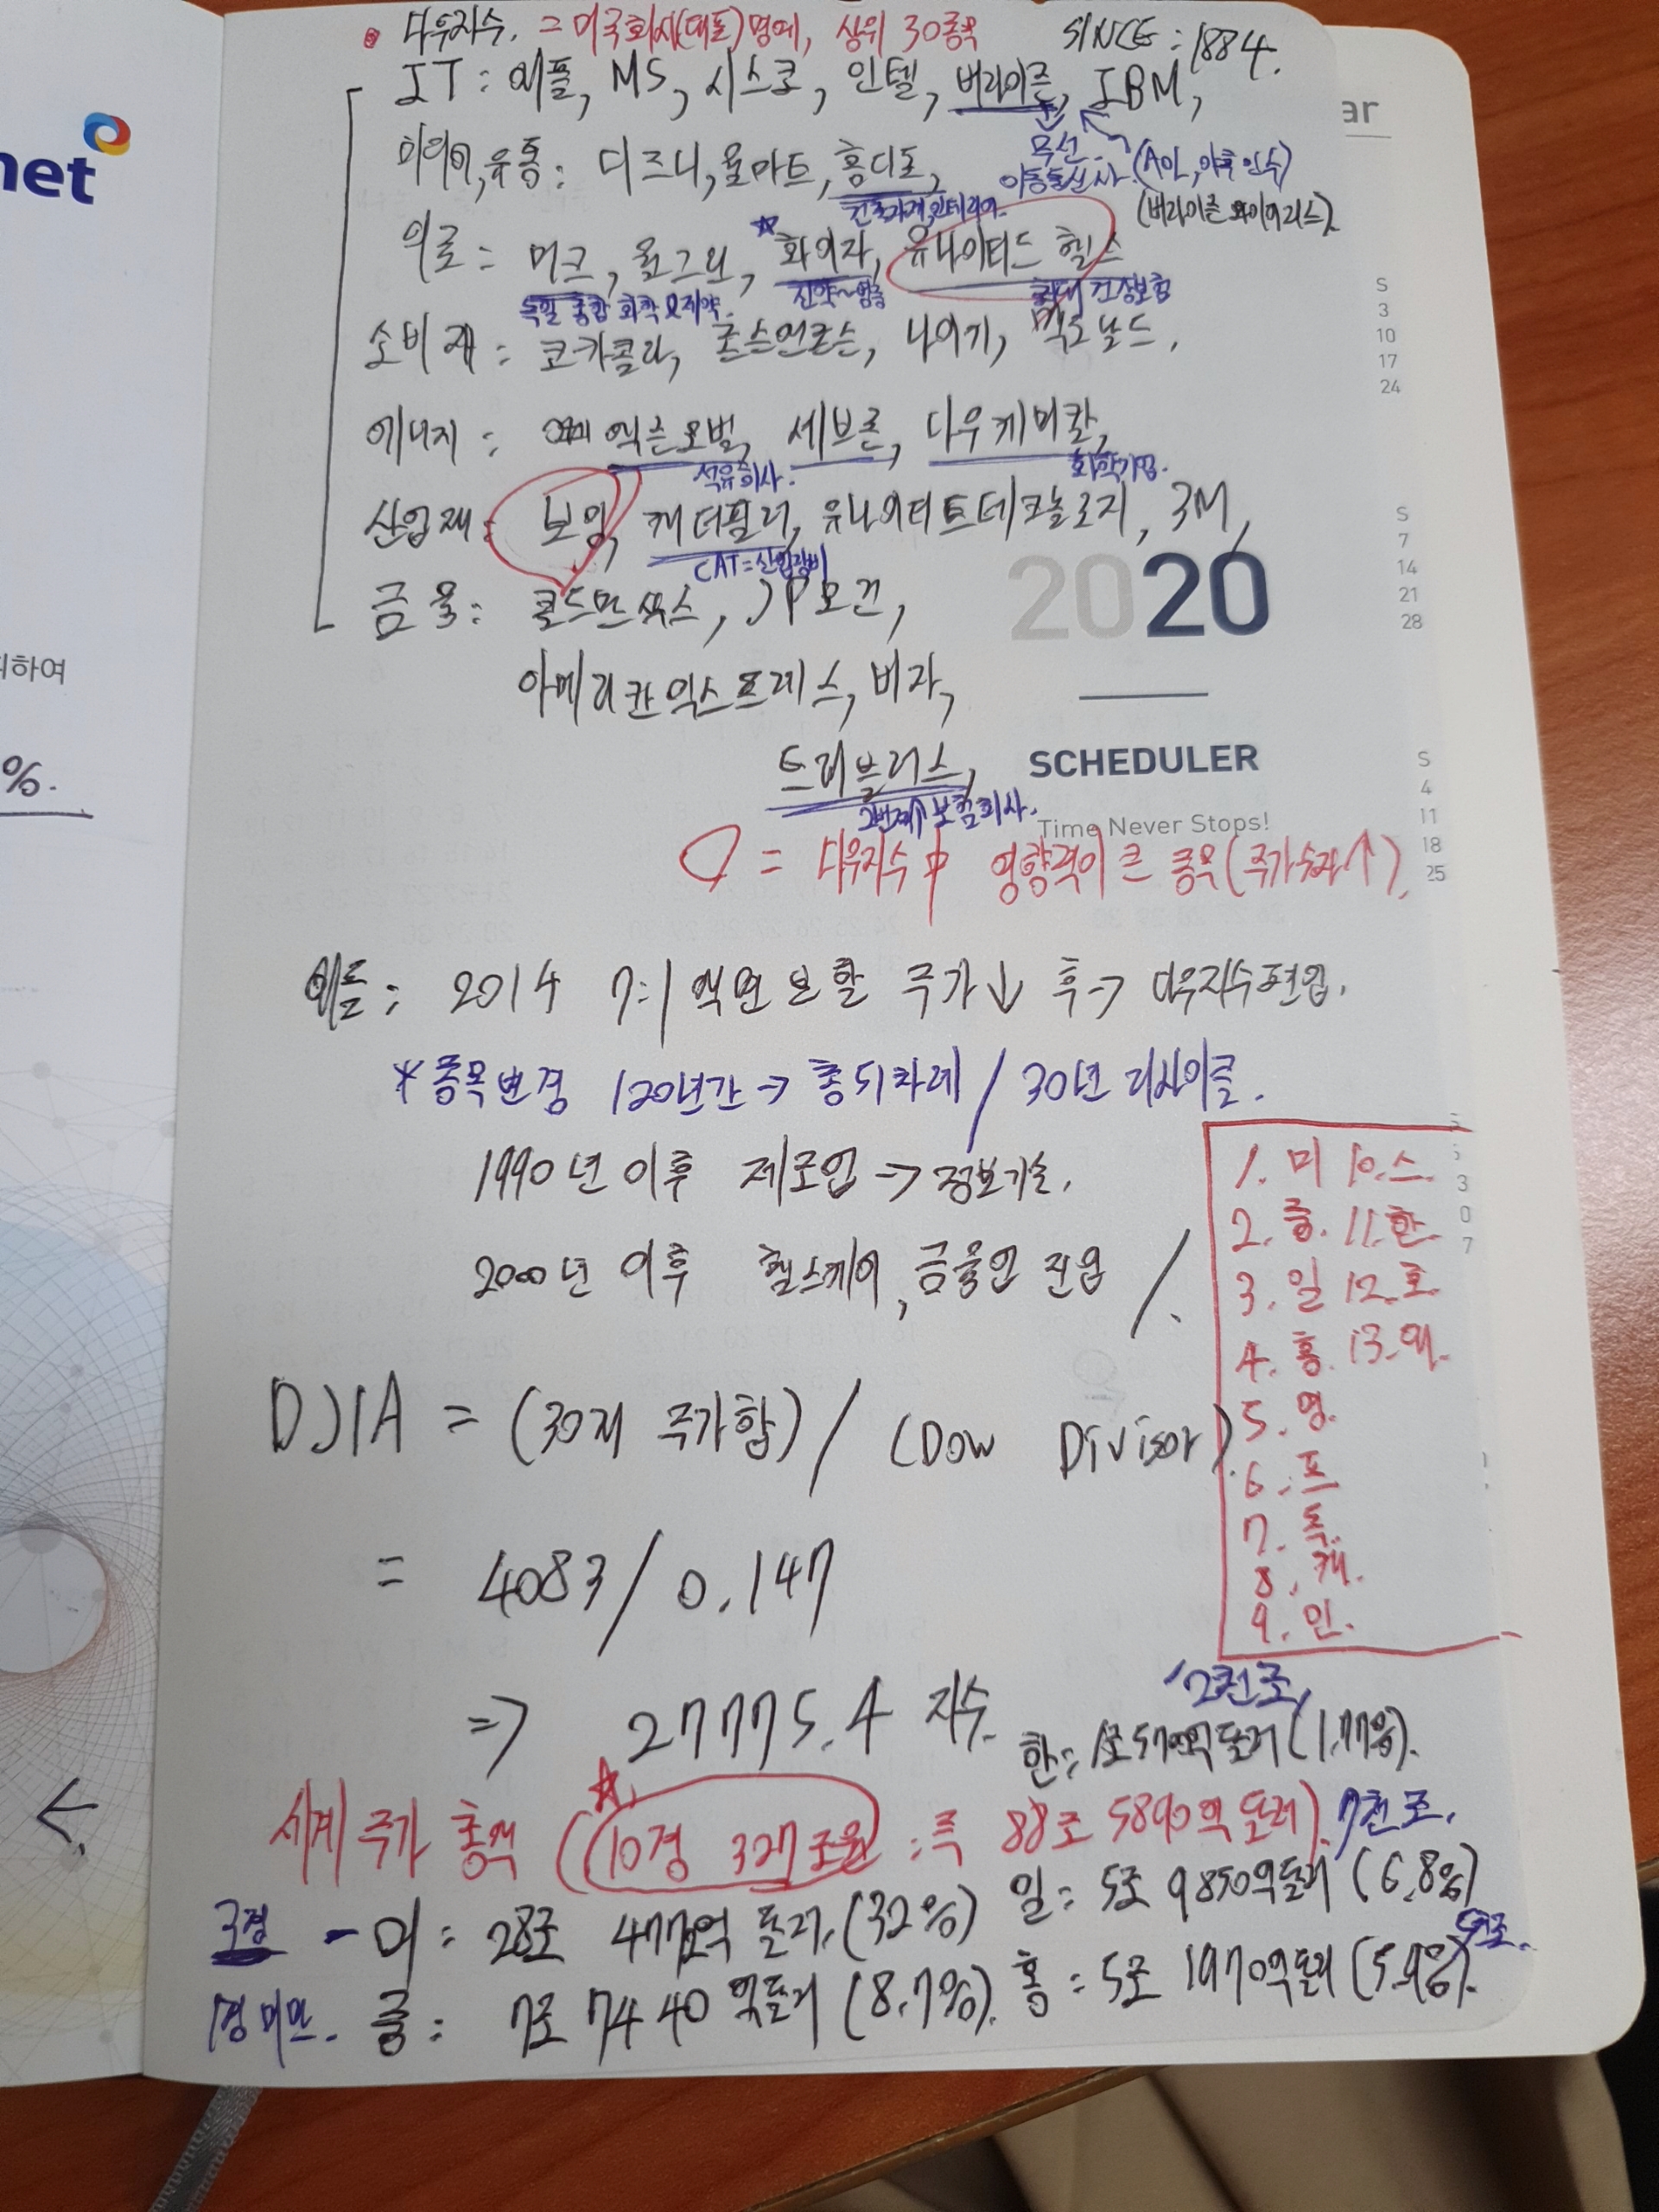 • 다우지수. = 미국회사(대표)명예, 상위 30종목 SINCE: 1884.
IT : 애플, MS, 시스코, 인텔, 버라이즌, IBM,
무선
이동통신사. (AOL, 야후 인수)
(버라이즌 와이어리스)
미디어, 유통 : 디즈니, 월마트, 홈디포,
건축자재, 인테리어.
의료 = 머크, 월그린, 화이자, 유나이티드 헬스
독일 종합 화학 및 제약. 최대 건강보험
소비재 : 코카콜라, 존슨앤존슨, 나이키, 맥도날드,
에너지 : 엑슨모빌, 셰브론, 다우케미칼,
석유회사. 화학기업.
산업재 : 보잉, 캐터필러, 유나이티드테크놀로지, 3M,
CAT=산업장비
금융 : 골드만삭스, JP모건,
아메리칸익스프레스, 비자,
트래블러스,
2번째 보험회사.
= 다우지수中 영향력이 큰 종목(주가숫자↑).
애플 : 2014 7:1 액면분할 주가↓ 후→ 다우지수편입.
* 종목변경 120년간 → 총 51차례 / 30년 리사이클.
1990년 이후 제조업 → 정보기술.
2000년 이후 헬스케어, 금융업 진입 /.
DJIA = (30개 주가합) / (Dow Divisor).
= 4083 / 0.147
=> 27775.4 지수.
1. 미 10. 스.
2. 중. 11. 한.
3. 일 12. 호.
4. 홍. 13. 대.
5. 영.
6. 프
7. 독.
8. 캐.
9. 인.
2천조
한 = 1조 5700억달러 (1.77%).
세계 주가 총액 (10경 327조원 : 즉 88조 5890억 달러). 7천조.
3경 - 미 : 28조 4772억 달러. (32%) 일 = 5조 9850억달러 (6.8%)
1경 미만. 중 : 7조 7440억달러 (8.7%). 홍 = 5조 1970억달러 (5.9%).
net
하여
%.
←
ar
2020
SCHEDULER
Time Never Stops!
S
3
10
17
24
S
7
14
21
28
S
4
11
18
25